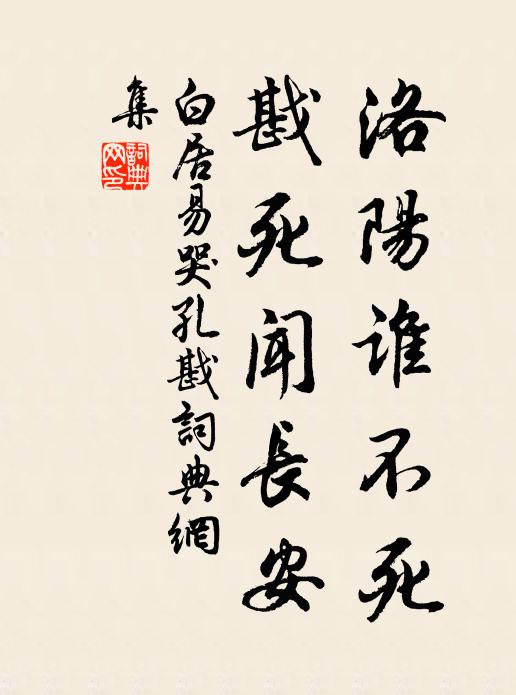 洛陽誰不死
戡死聞長安
白居易哭孔戡詞典網
集
詞典
网印